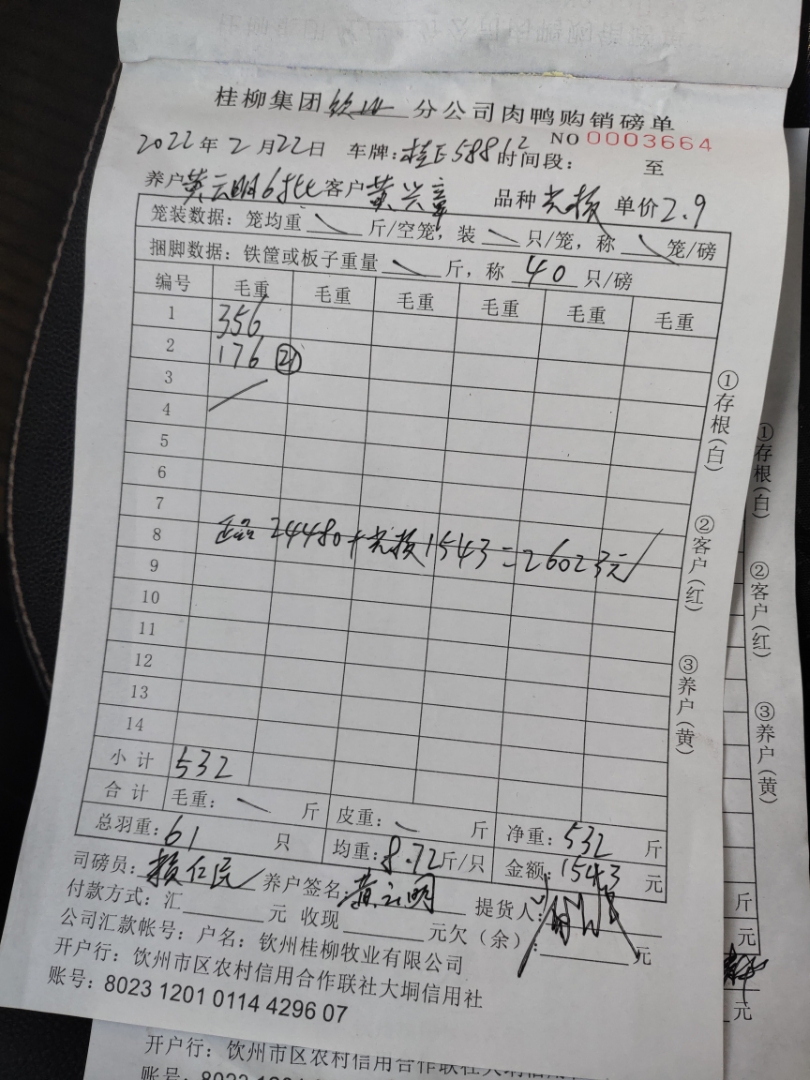 桂柳集团钦州分公司肉鸭购销磅单
NO 0003664
2022年2月22日 车牌:桂E58862时间段: 至
养户黄云明6批客户黄兴章 品种 单价2.9
笼装数据:笼均重\斤/空笼,装\只/笼,称\笼/磅
捆脚数据:铁筐或板子重量\斤,称40只/磅
编号 毛重 毛重 毛重 毛重 毛重 毛重
1 356
2 176 ㉑
3
4
5
6
7
8 24480+ 1543=26023元
9
10
11
12
13
14
小计 532
合计 毛重:\斤 皮重:\斤 净重:532斤
总羽重:61只 均重:8.72斤/只 金额:1543元
司磅员: 仁民 养户签名:黄云明 提货人:
付款方式:汇 元 收现 元欠(余): 元
公司汇款帐号:户名:钦州桂柳牧业有限公司
开户行:钦州市区农村信用合作联社大垌信用社
账号:8023 1201 0114 4296 07
①存根(白)
②客户(红)
③养户(黄)
①存根(白)
②客户(红)
③养户(黄)
斤
元
元
开户行:钦州市区农村信用合作联社大垌信用
账号:8023 1201 0114 4296 07